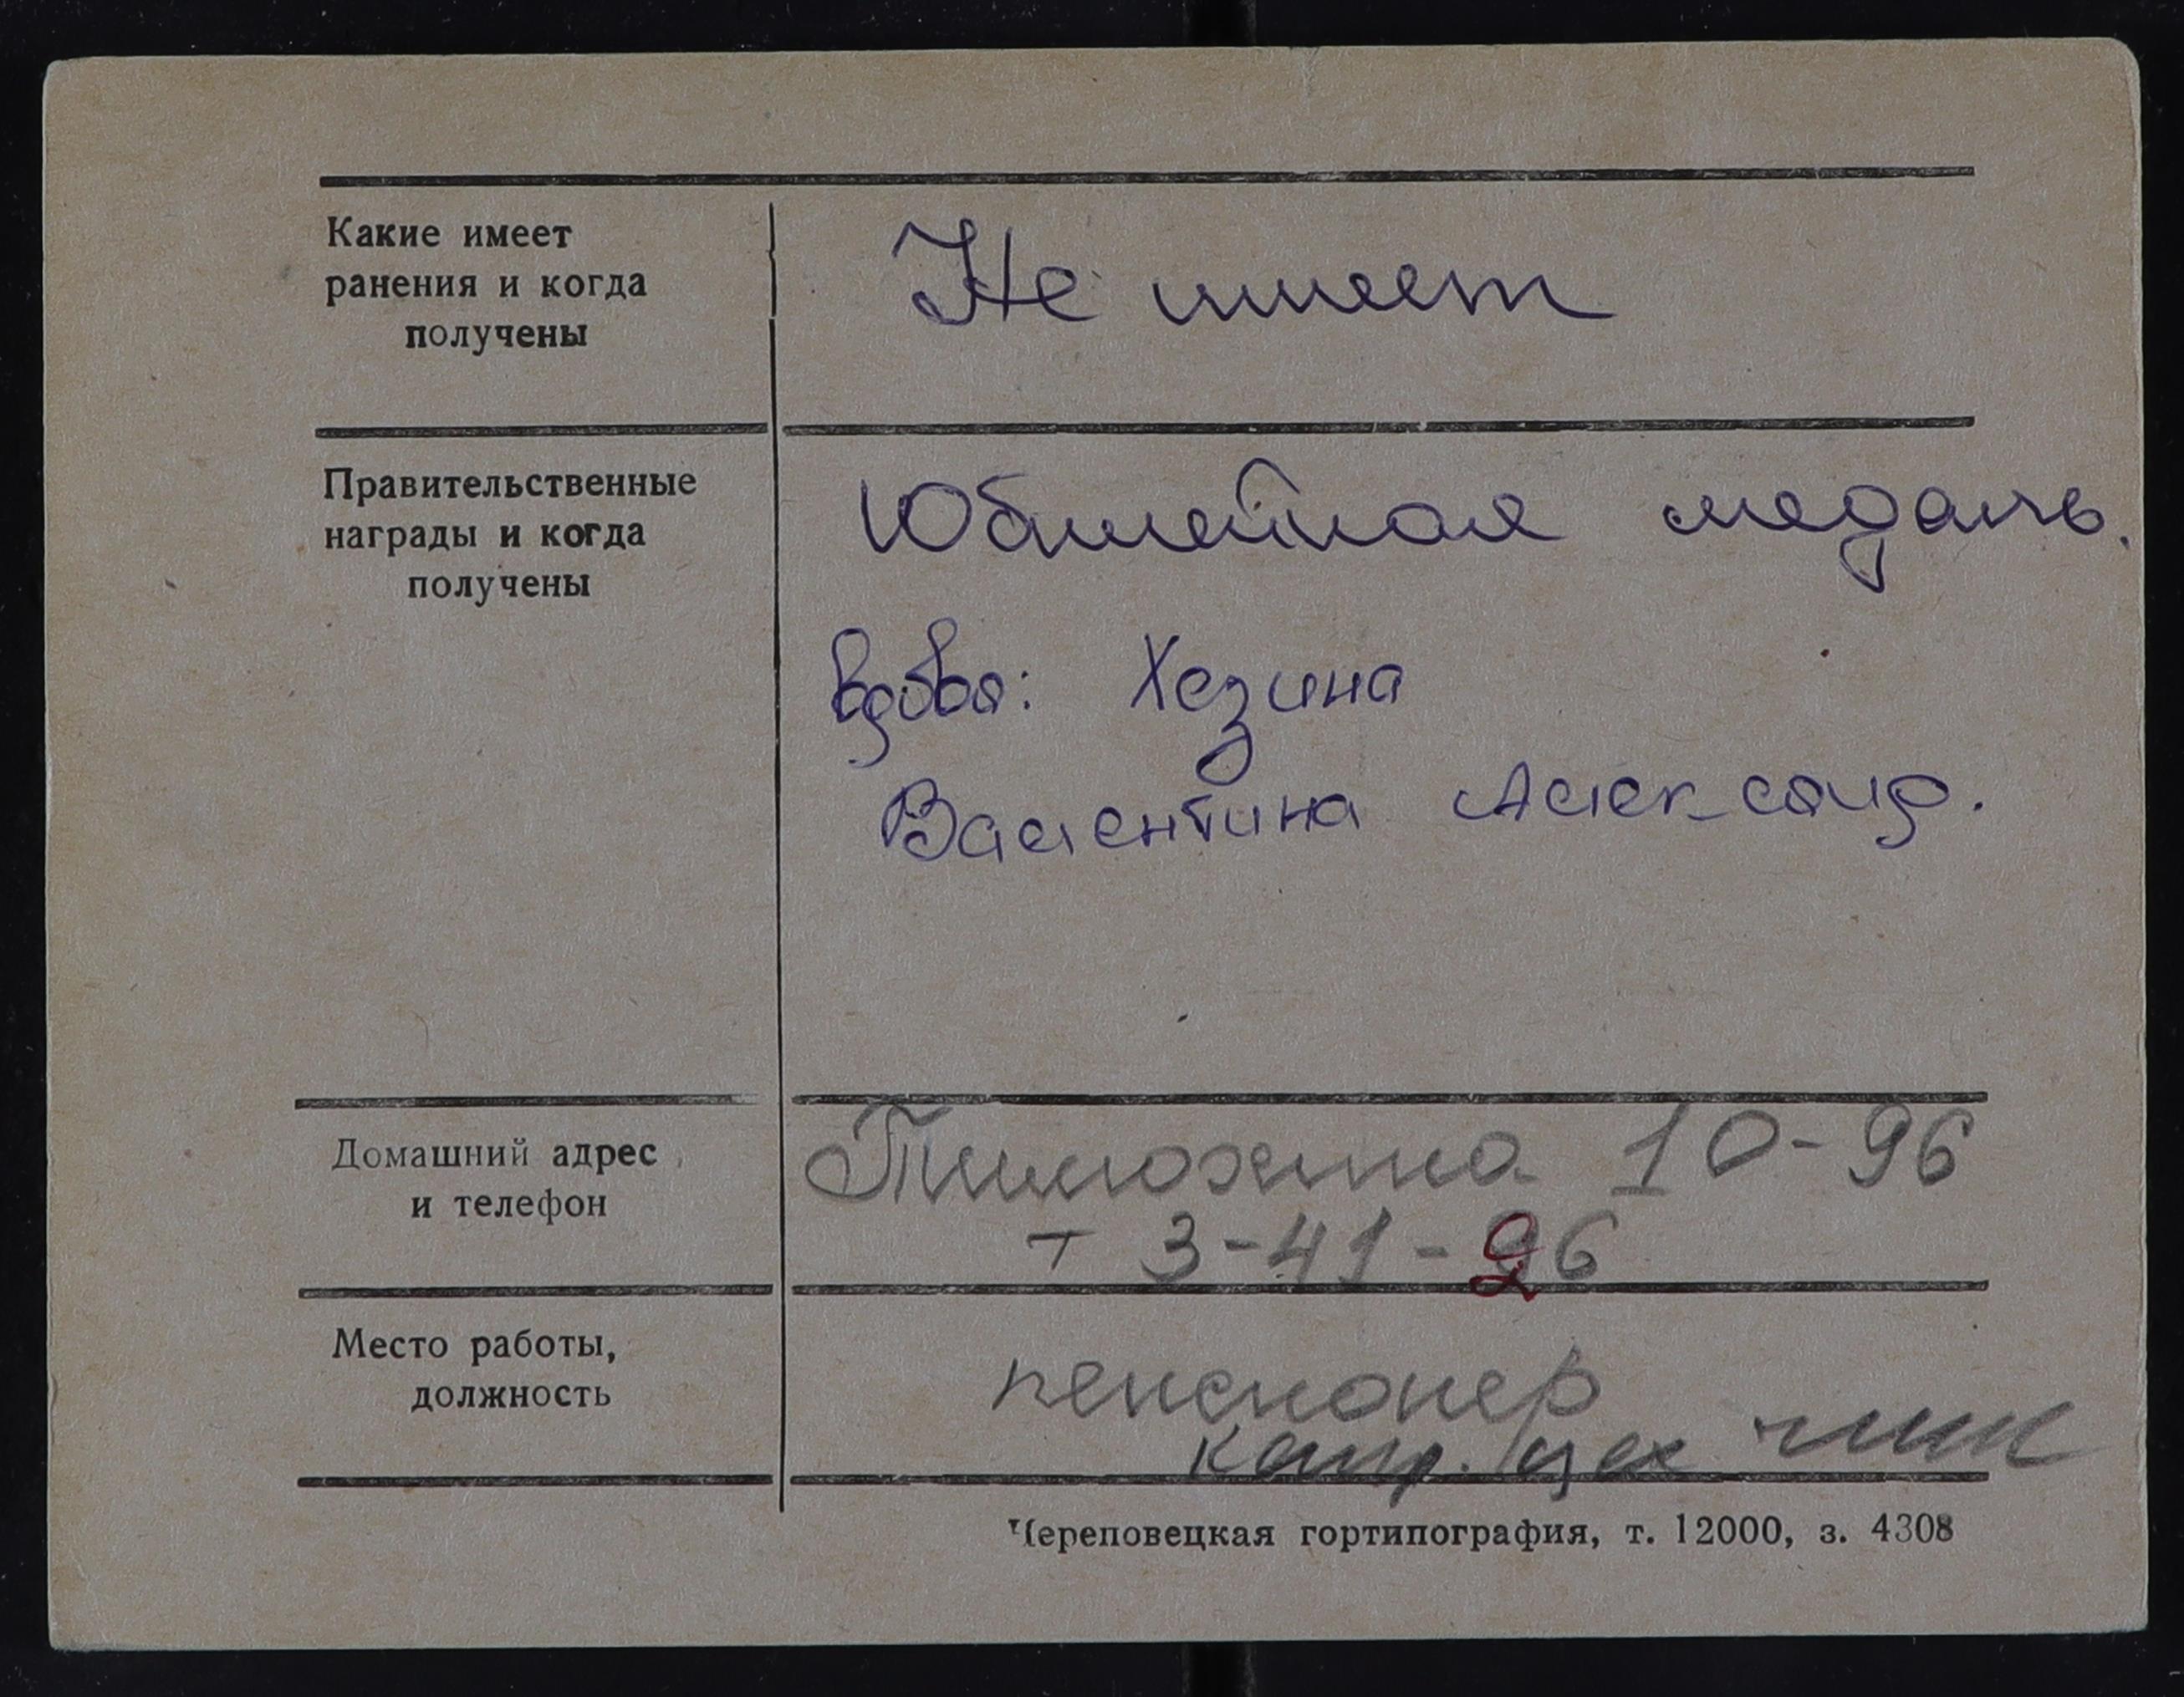 Какие имеет
ранения и когда
получены
Не имеет
Правительственные
награды и когда
получены
Юбилейная медаль.
вдова: Хезина
Валентина Александ.
Домашний адрес
и телефон
Тимохина 10-96
т 3-41-26
Место работы,
должность
пенсионер
копр. цех ЧМК
Череповецкая гортипография, т. 12000, з. 4308